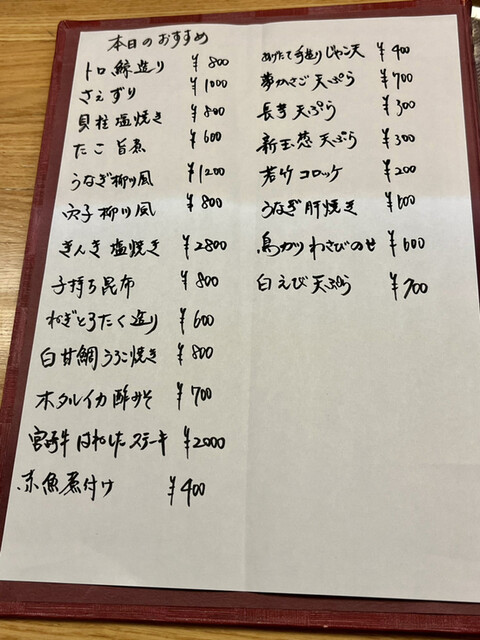 本日のおすすめ
トロ鯨造り ¥800
さえずり ¥1000
貝柱塩焼き ¥800
たこ旨煮 ¥600
うなぎ柳川風 ¥1200
穴子柳川風 ¥800
きんき塩焼き ¥2800
子持ち昆布 ¥800
ねぎとろたく造り ¥600
白甘鯛うろこ焼き ¥800
ホタルイカ酢みそ ¥700
宮崎牛はねしたステーキ ¥2000
赤魚煮付け ¥400
あげたて手造りじゃこ天 ¥400
夢かさご天ぷら ¥700
長芋天ぷら ¥300
新玉葱天ぷら ¥300
若竹コロッケ ¥200
うなぎ肝焼き ¥600
鳥かつわさびのせ ¥600
白えび天ぷら ¥700